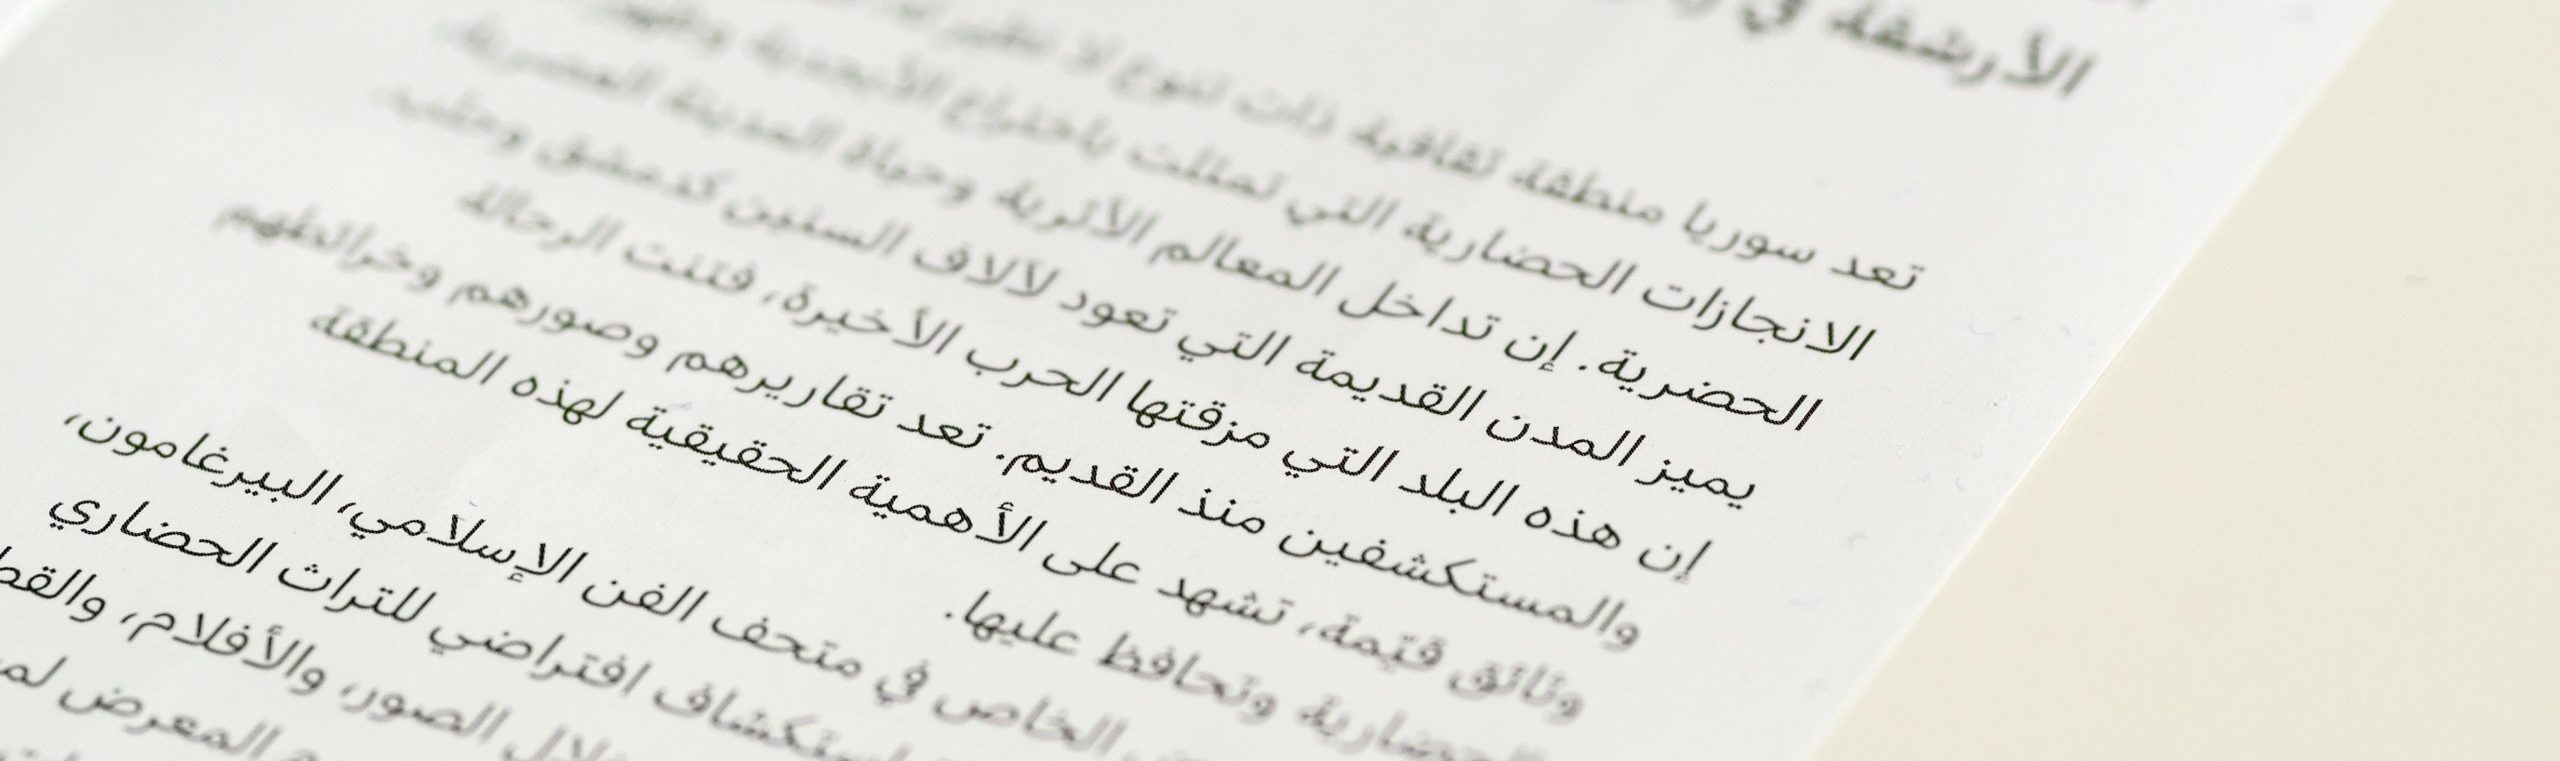 الأرشفة في
تعد سوريا منطقة ثقافية ذات تنوع لا نظير له
الانجازات الحضارية التي تمثلت باختراع الأبجدية وظهور
الحضرية. إن تداخل المعالم الأثرية وحياة المدينة العصرية،
يميز المدن القديمة التي تعود لآلاف السنين كدمشق وحلب.
إن هذه البلد التي مزقتها الحرب الأخيرة، فتنت الرحالة
والمستكشفين منذ القديم. تعد تقاريرهم وصورهم وخرائطهم
وثائق قيّمة، تشهد على الأهمية الحقيقية لهذه المنطقة
الحضارية وتحافظ عليها.
الخاص في متحف الفن الإسلامي، البيرغامون،
استكشاف افتراضي للتراث الحضاري
خلال الصور، والأفلام،
المعرض